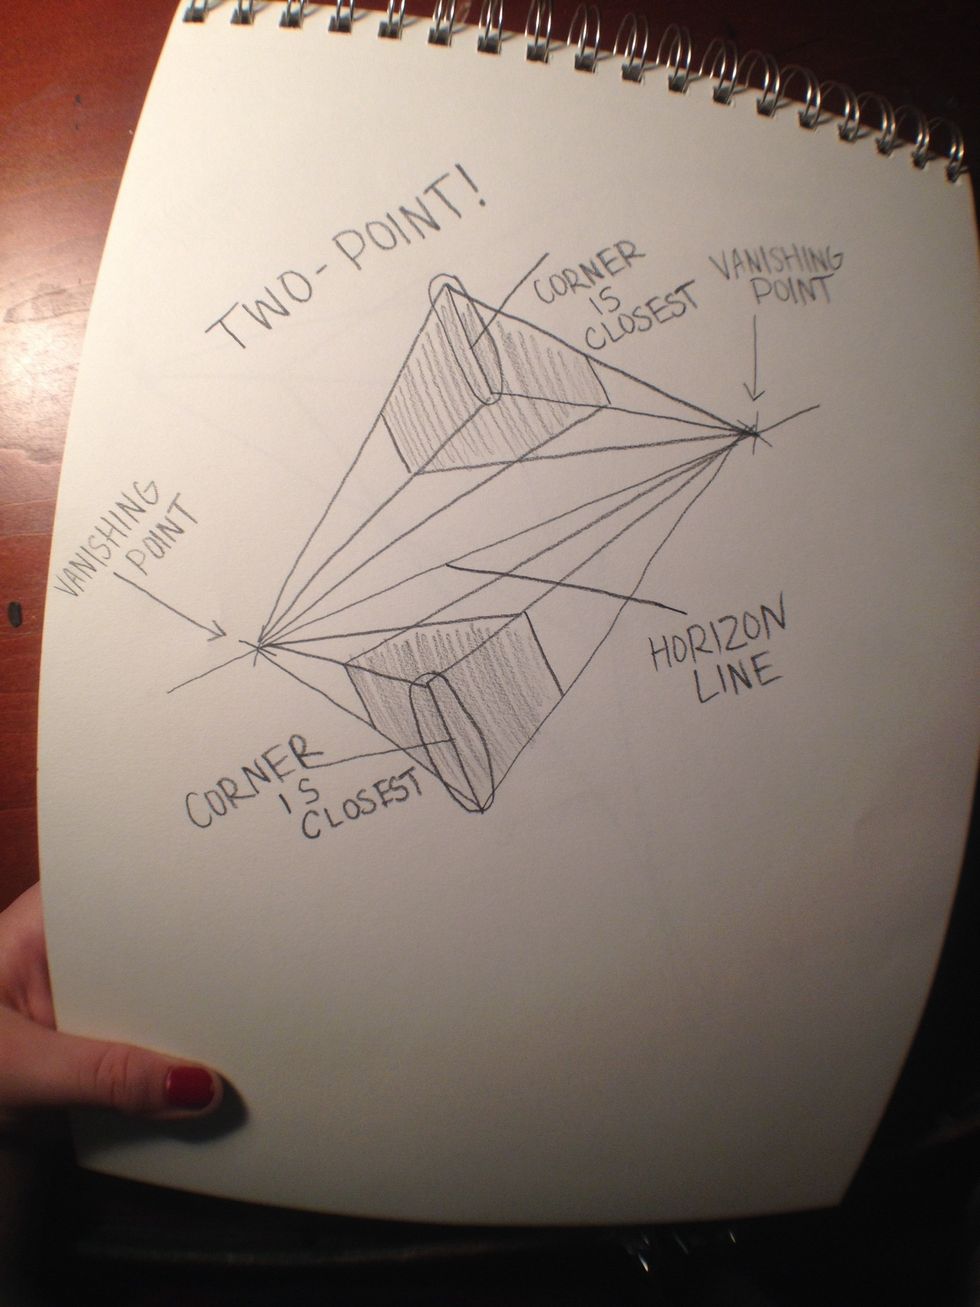 TWO-POINT!
CORNER
IS
CLOSEST
VANISHING
POINT
VANISHING
POINT
HORIZON
LINE
CORNER
IS
CLOSEST